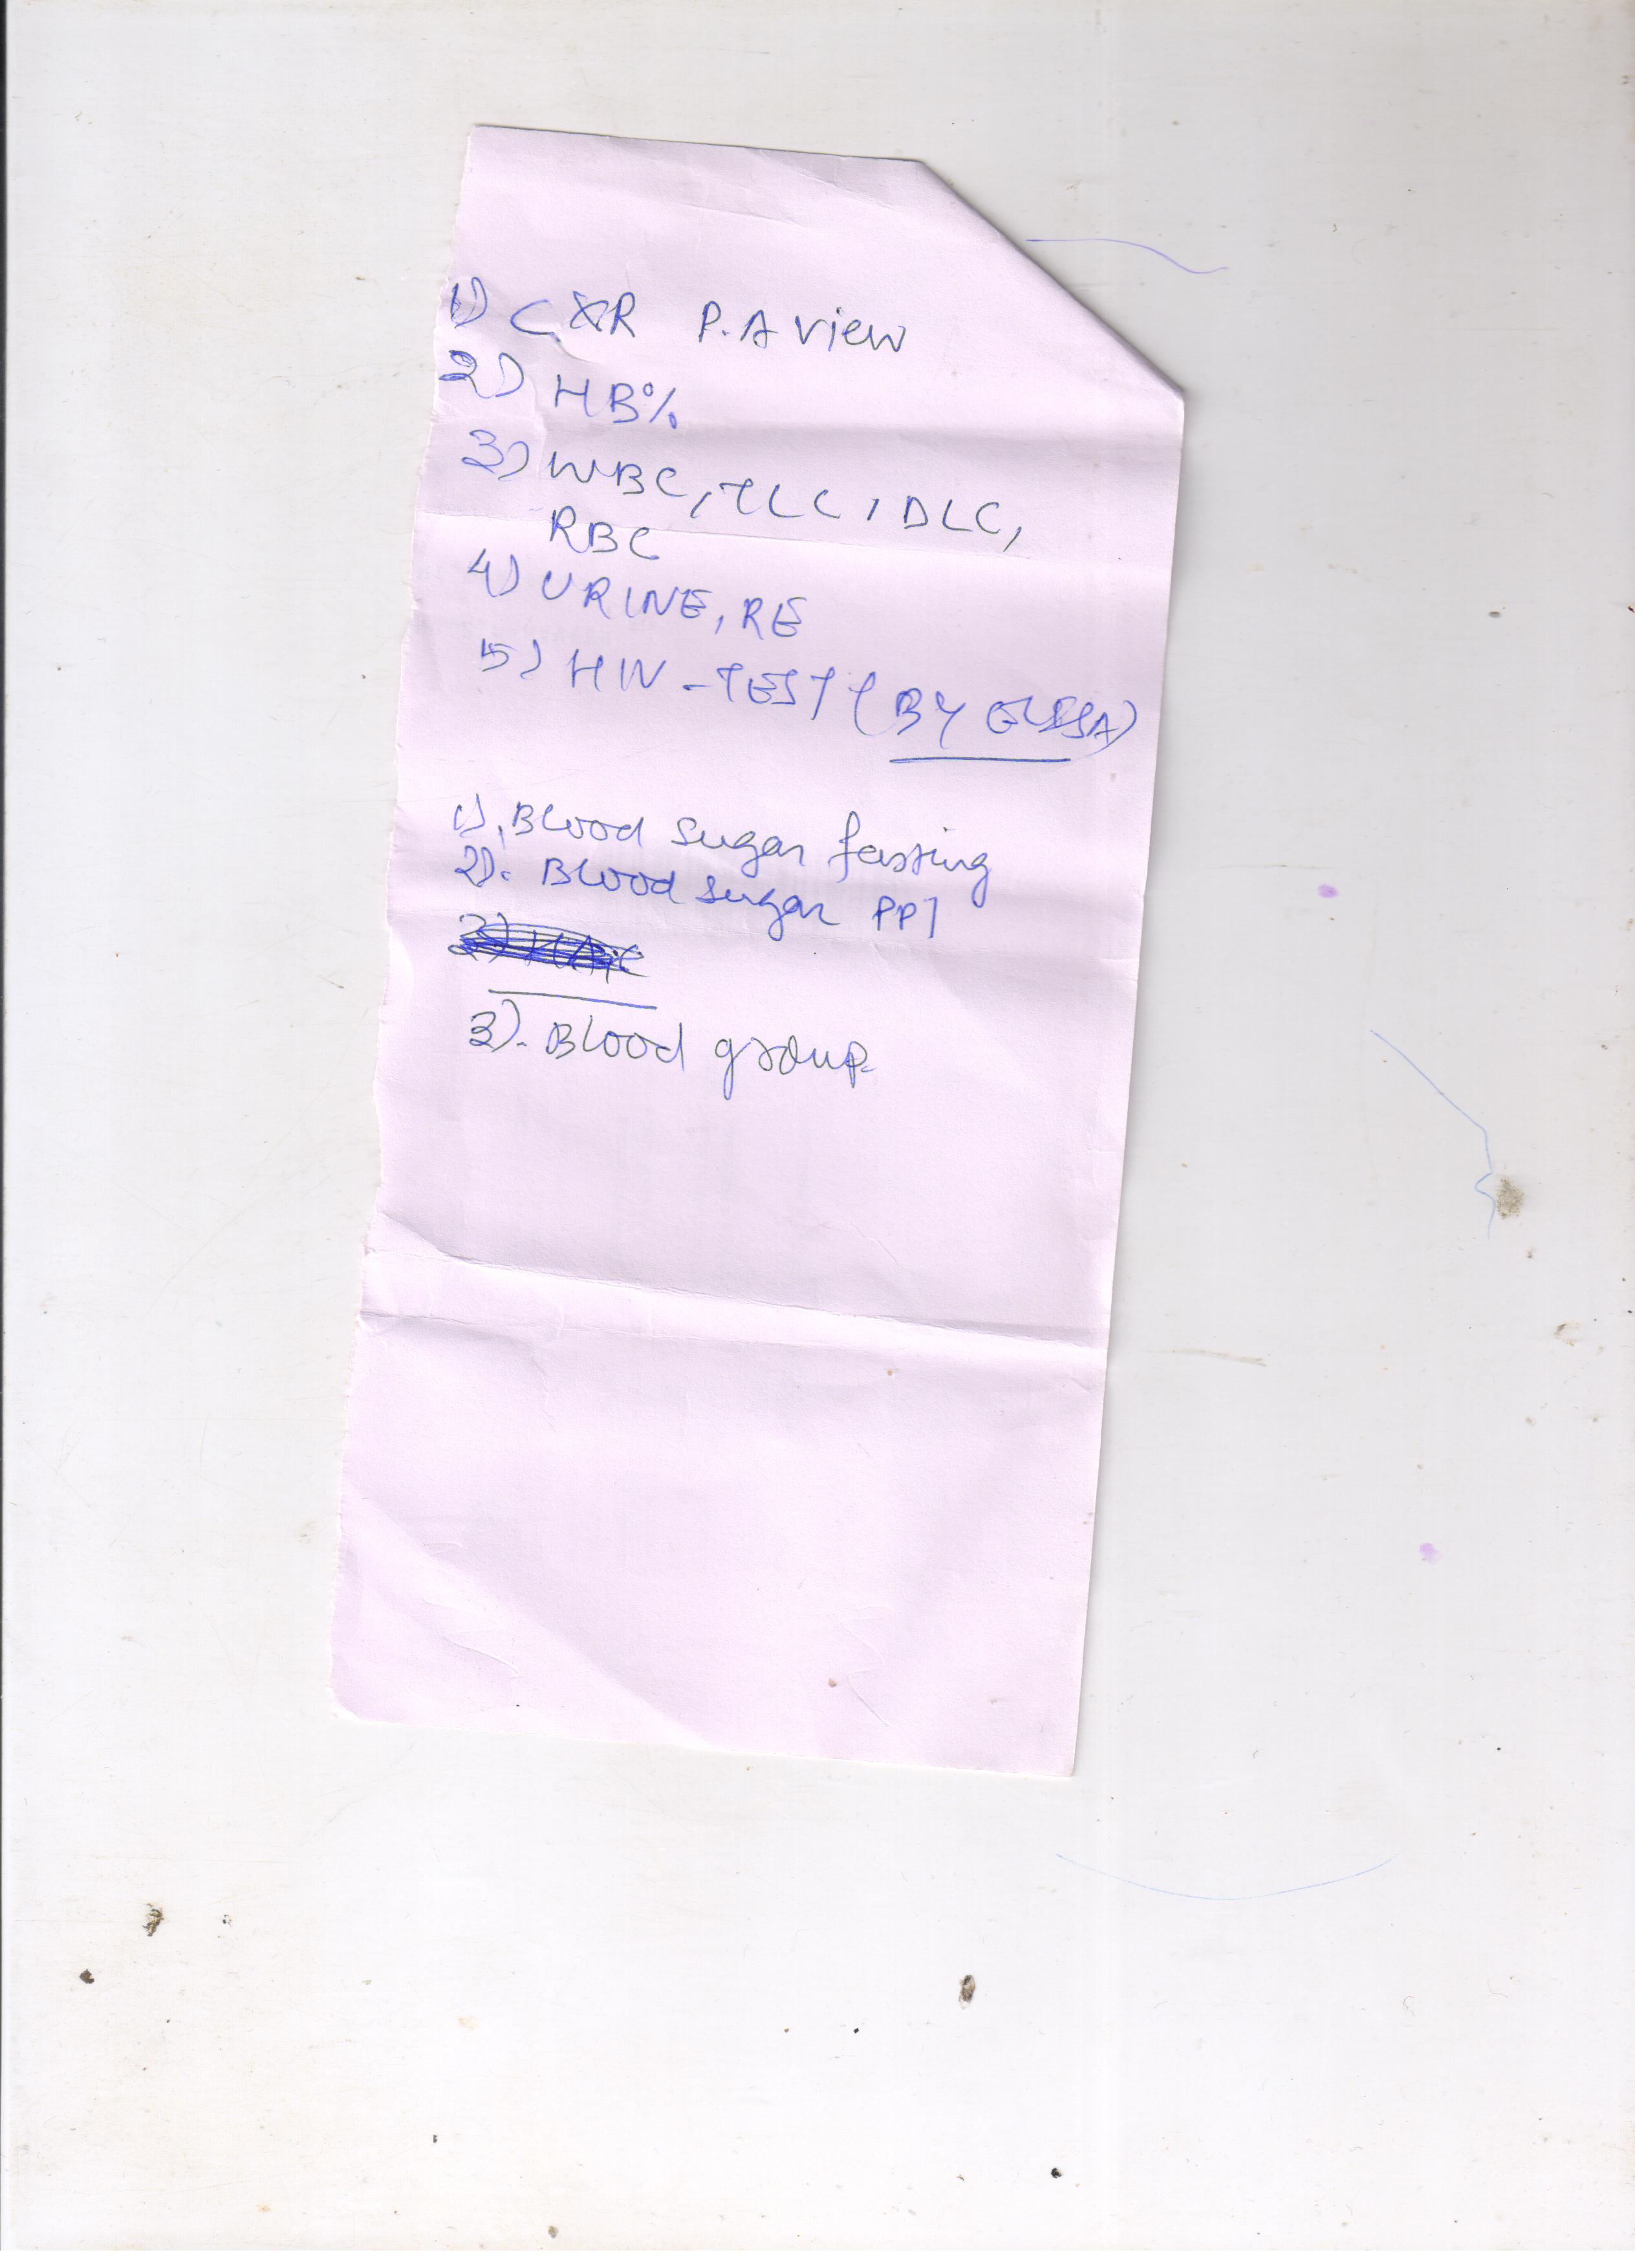 1) CXR P.A view
2) HB%
3) WBC, TLC, DLC,
RBC
4) URINE, RE
5) HIV - TEST (BY ELISA)
1). Blood sugar fasting
2). Blood sugar PP
3). Blood group.